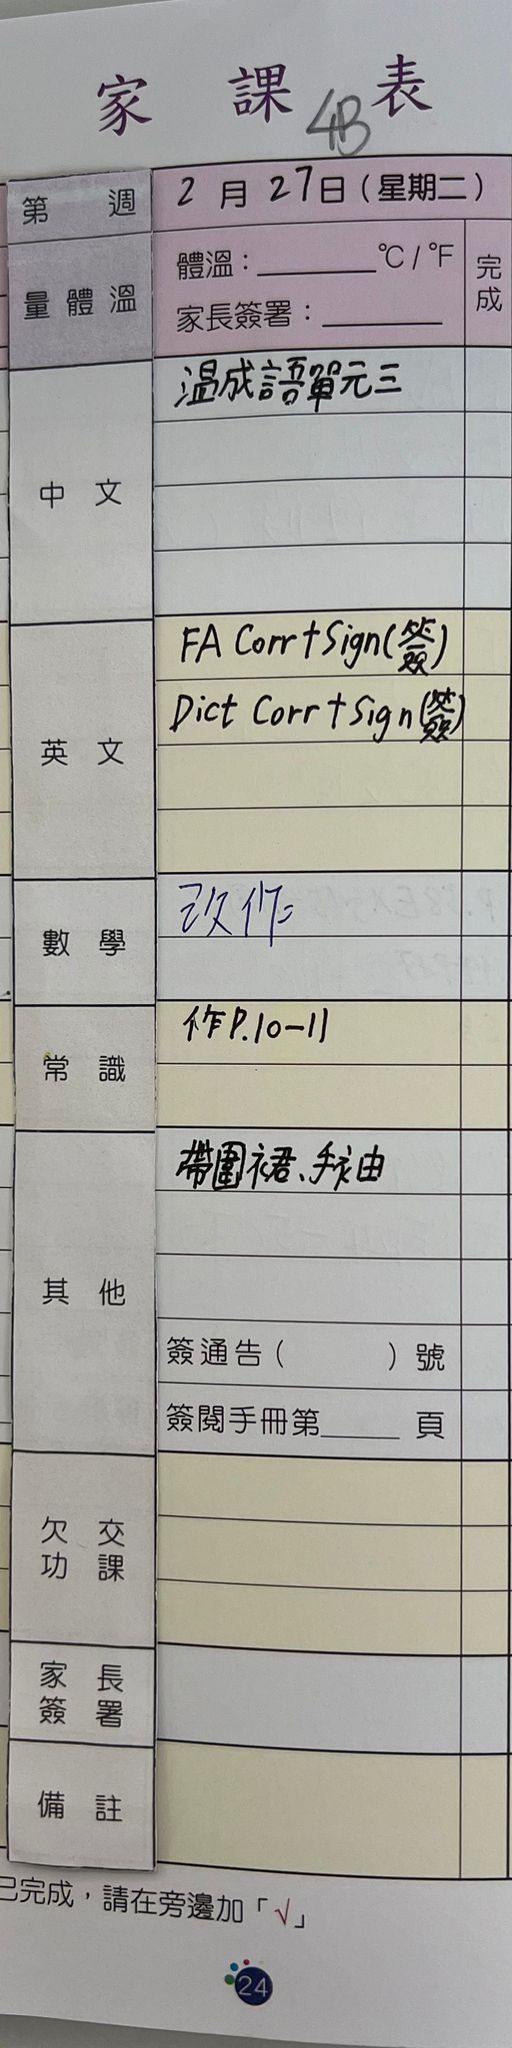 家課表
4B
第 週
2月27日(星期二)
量體溫
體溫：______℃/℉
家長簽署：______
完成
中文
温成語單元三
英文
FA Corr+Sign(簽)
Dict Corr+Sign(簽)
數學
改作=
常識
作P.10-11
其他
帶圍裙、手袖
簽通告( )號
簽閱手冊第____頁
欠交功課
家長簽署
備註
已完成，請在旁邊加「√」
24